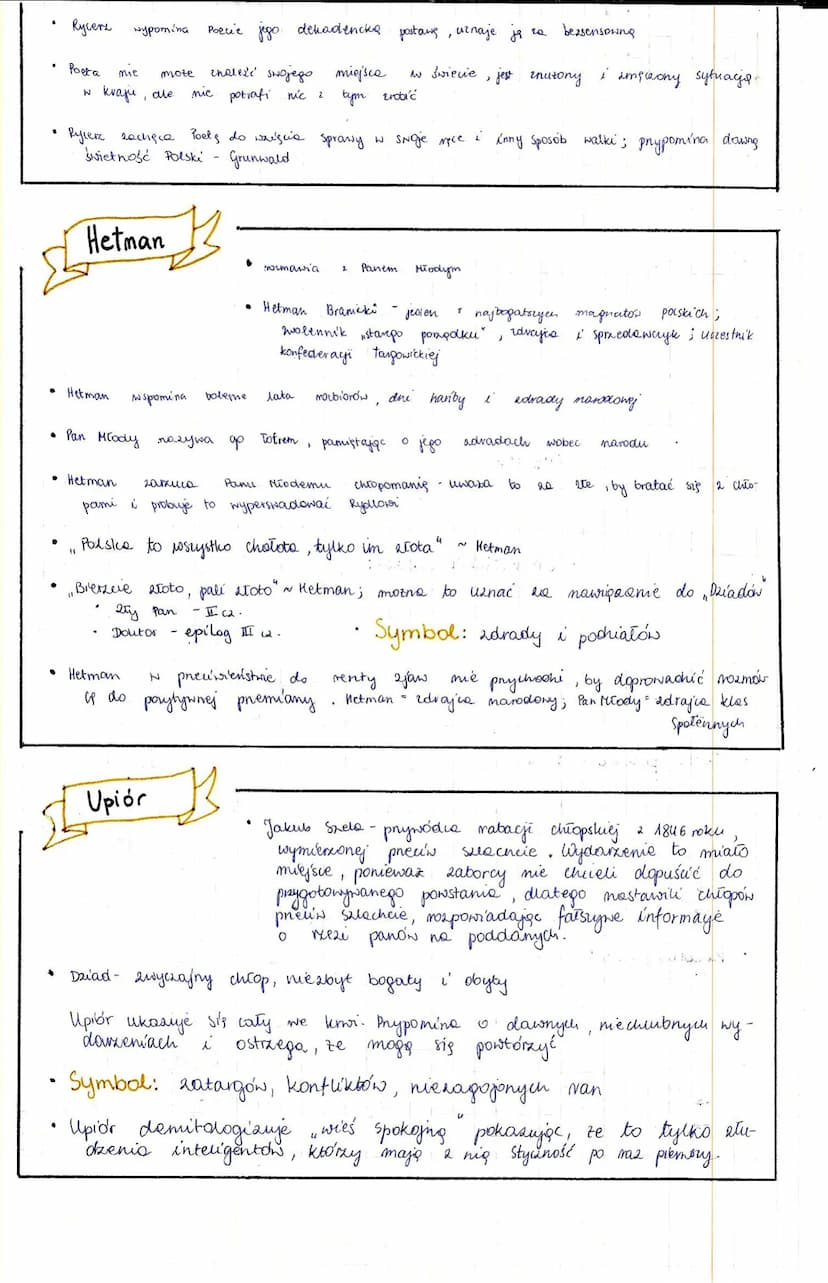 • Rycerz wypomina Poecie jego dekadencką postawę, uznaje ją za bezsensowną
• Poeta nie może znaleźć swojego miejsca w świecie, jest znużony i zmęczony sytuacją
w kraju, ale nie potrafi nic z tym zrobić
• Rycerz zachęca Poetę do wzięcia sprawy w swoje ręce i inny sposób walki; przypomina dawną
świetność Polski - Grunwald
Hetman
• rozmawia z Panem Młodym
• Hetman Branicki - jeden z najbogatszych magnatów polskich;
zwolennik „starego porządku", zdrajca i sprzedawczyk; uczestnik
konfederacji targowickiej
• Hetman wspomina bolesne lata rozbiorów, dni hańby i zdrady narodowej
• Pan Młody nazywa go łotrem, pamiętając o jego zdradach wobec narodu
• Hetman zarzuca Panu Młodemu chłopomanię - uważa to za złe, by bratać się z chło-
pami i próbuje to wyperswadować Rydlowi
• „Polska to wszystko chołota, tylko im złota" ~ Hetman
• „Bierzcie złoto, pali złoto" ~ Hetman; można to uznać za nawiązanie do „Dziadów"
• zły Pan - II cz.
• Doktor - epilog III cz.
• Symbol: zdrady i podziałów
• Hetman w przeciwieństwie do reszty zjaw nie przychodzi, by doprowadzić rozmów
cę do pozytywnej przemiany. Hetman = zdrajca narodowy; Pan Młody = zdrajca klas
społecznych
Upiór
• Jakub Szela - przywódca rabacji chłopskiej z 1846 roku,
wymierzonej przeciw szlachcie. Wydarzenie to miało
miejsce, ponieważ zaborcy nie chcieli dopuścić do
przygotowywanego powstania, dlatego nastawili chłopów
przeciw szlachcie, rozpowiadając fałszywe informacje
o rzezi panów na poddanych.
• Dziad- zwyczajny chłop, niezbyt bogaty i obyty
Upiór ukazuje się cały we krwi. Przypomina o dawnych, niechlubnych wy-
darzeniach i ostrzega, że mogą się powtórzyć
• Symbol: zatargów, konfliktów, niezagojonych ran
• Upiór demitologizuje „wieś spokojną" pokazując, że to tylko złu-
dzenia inteligentów, którzy mają z nią styczność po raz pierwszy.